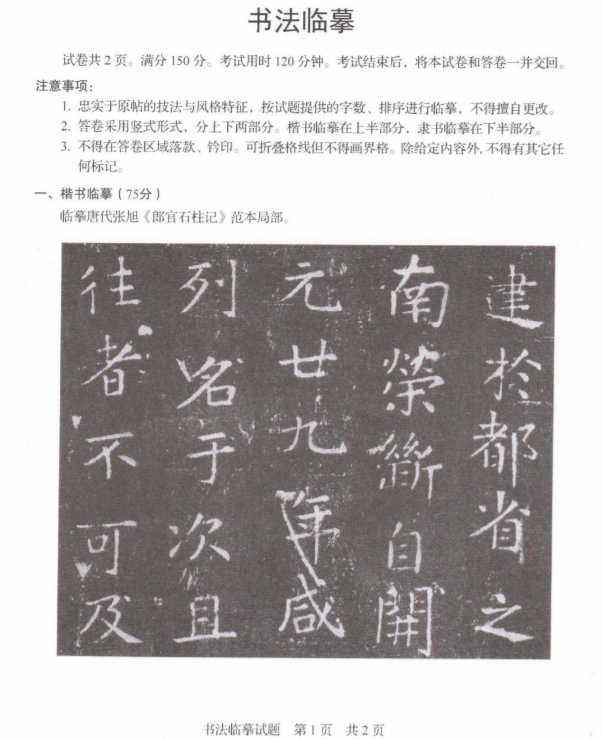 书法临摹
试卷共 2 页。满分 150 分。考试用时 120 分钟。考试结束后，将本试卷和答卷一并交回。
注意事项：
1. 忠实于原帖的技法与风格特征，按试题提供的字数、排序进行临摹，不得擅自更改。
2. 答卷采用竖式形式，分上下两部分。楷书临摹在上半部分，隶书临摹在下半部分。
3. 不得在答卷区域落款、钤印。可折叠格线但不得画界格。除给定内容外，不得有其它任
何标记。
一、楷书临摹（75分）
临摹唐代张旭《郎官石柱记》范本局部。
建於都省之
南榮斲自開
元廿九年咸
列名于次且
往者不可及
书法临摹试题 第 1 页 共 2 页